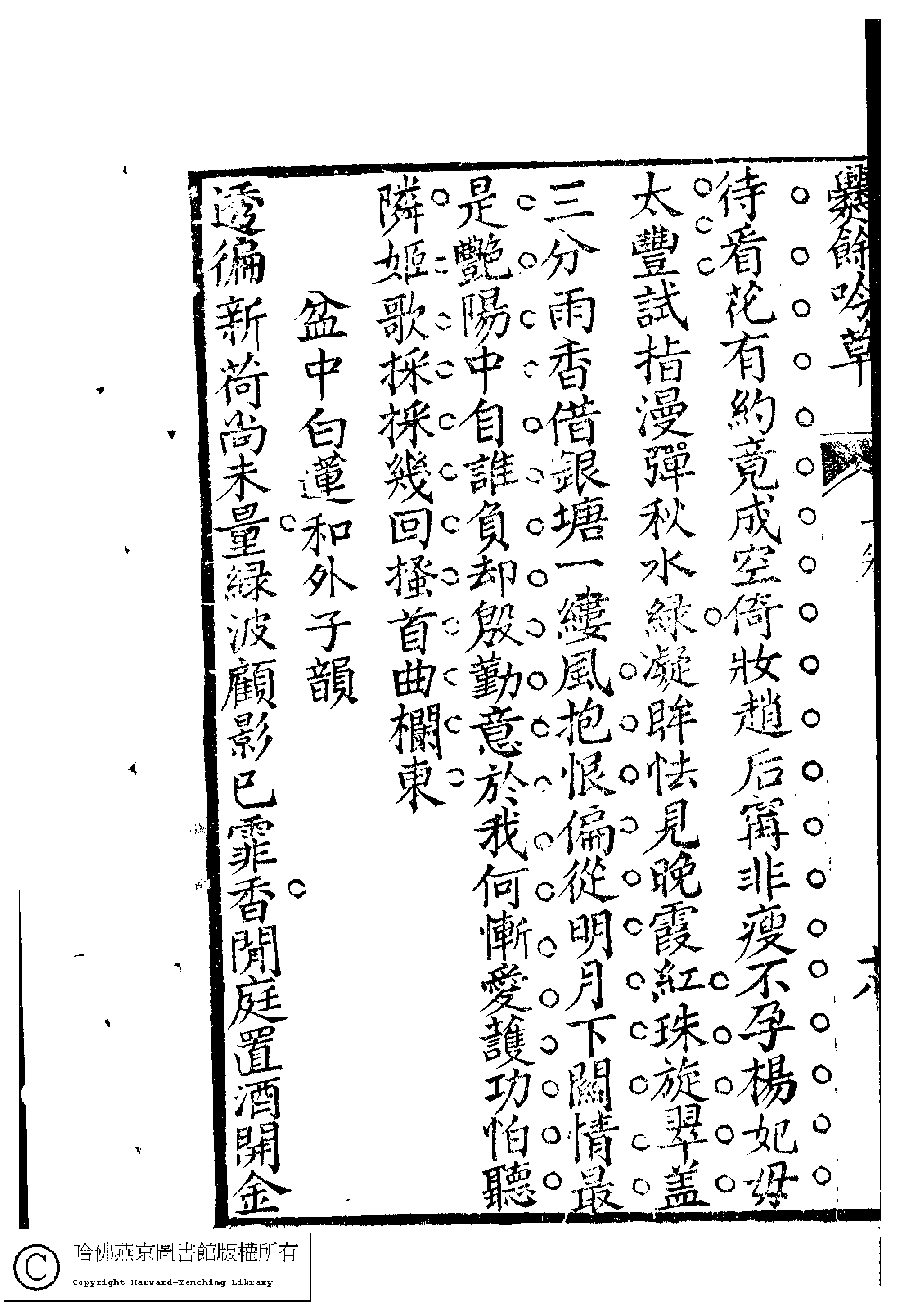 爨餘吟草
待看花有約竟成空倚妝趙后寗非瘦不孕楊妃毋
太豐試㧬漫彈秋水綠凝眸怯見晚霞紅珠旋翠盖
三分雨香借銀塘一縷風抱恨偏從明月下關情最
是艷陽中自誰負却殷勤意於我何慚愛護功怕聽
隣姬歌採採幾回搔首曲欄東
盆中白蓮和外子韻
透徧新荷尚未量綠波顧影已霏香閒庭置酒開金
哈佛燕京圖書館版權所有
Copyright Harvard-Yenching Library